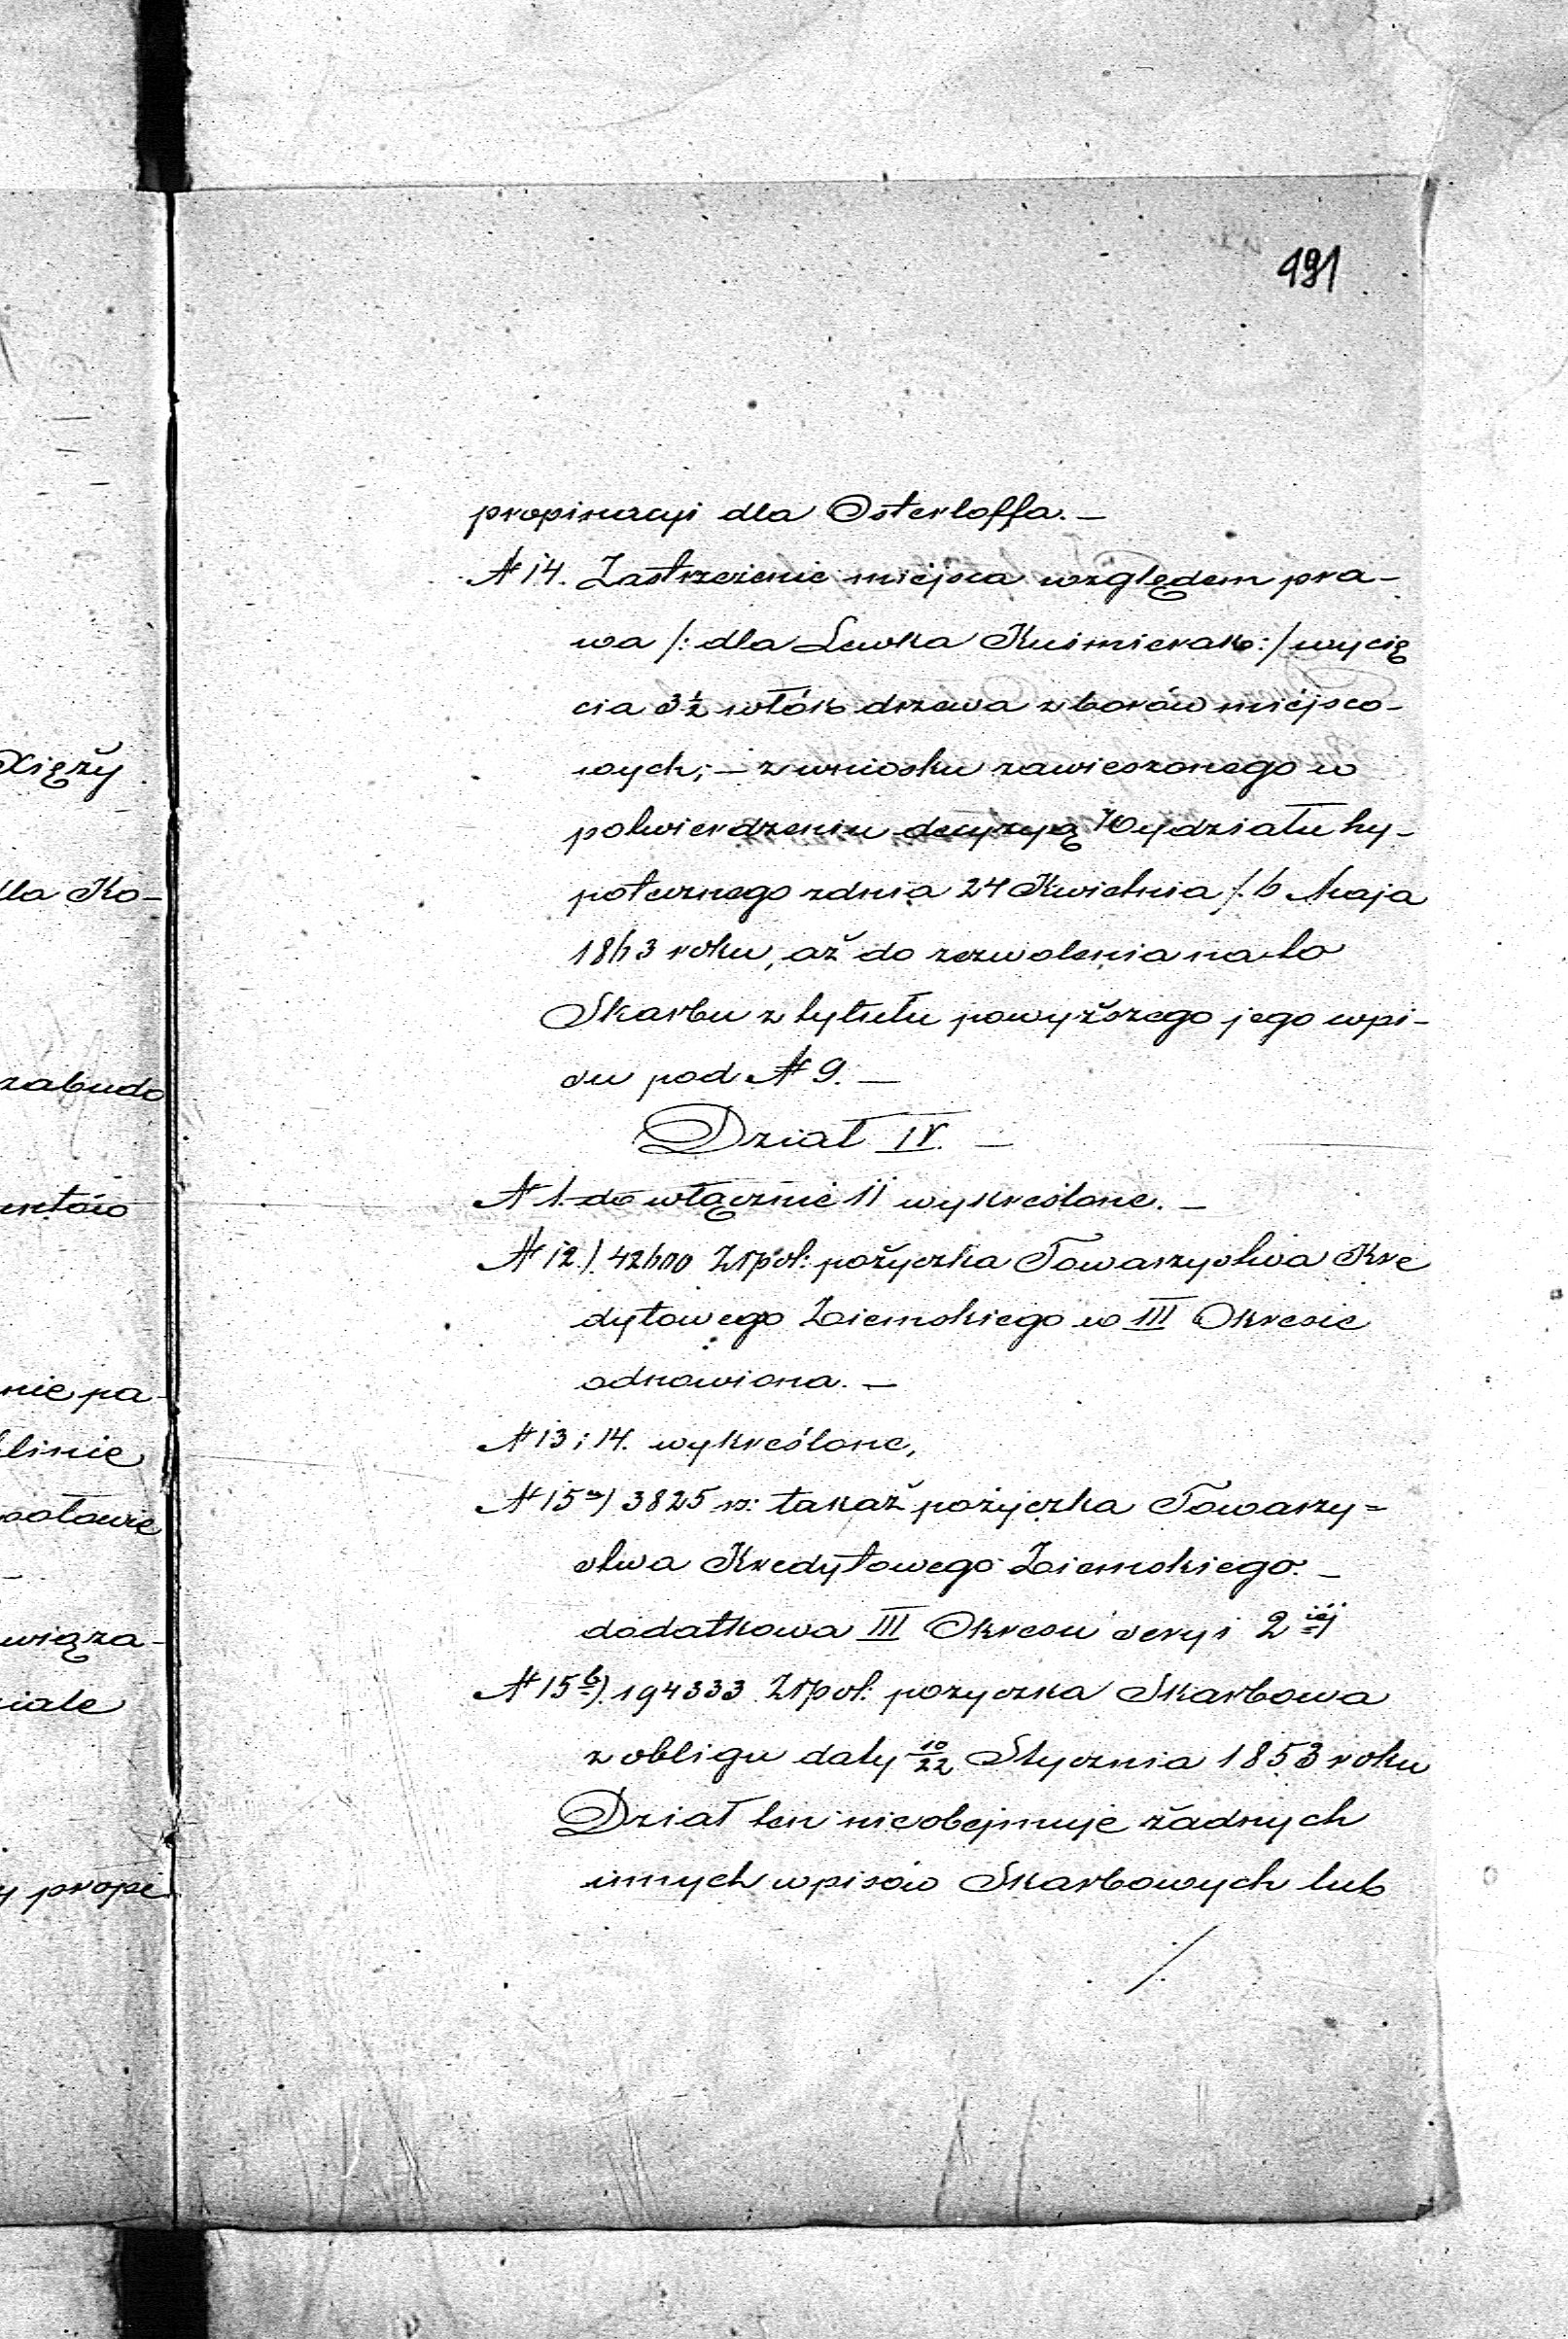 491
propinacyi dla Osterloffa. —
№ 14. Zastrzeżenie miéjsca względem pra-
wa /: dla Lewka Kuśmierak :/ wycię
cia 3½ włók drzewa z borów miéjsco-
wych; — z wniosku zawieszonego w
potwierdzeniu decyzyą Wydziału hy-
potecznego z dnia 24 Kwietnia /: 6 Maja
1863 roku, aż do zezwolenia na to
Skarbu z tytułu powyższego jego wpi-
su pod № 9. —
Dział IV. —
№ 1. do włącznie 11 wykreślone. —
№ 12.) 42600 Złpol: pożyczka Towarzystwa Kre
dytowego Ziemskiego w III Okresie
odnowiona. —
№ 13 i 14. wykreślone,
№ 15a) 3825 rs: takaż pożyczka Towarzy=
stwa Kredytowego Ziemskiego. —
dodatkowa III Okresu seryi 2iéj
№ 15b) 194333 Złpol: pożyczka Skarbowa
z obligu daty 10/22 Stycznia 1853 roku
Dział ten nieobejmuje żadnych
innych wpisów Skarbowych lub
/
Xięży
dla Ko-
zabudo
nie pa-
wiąza-
propi